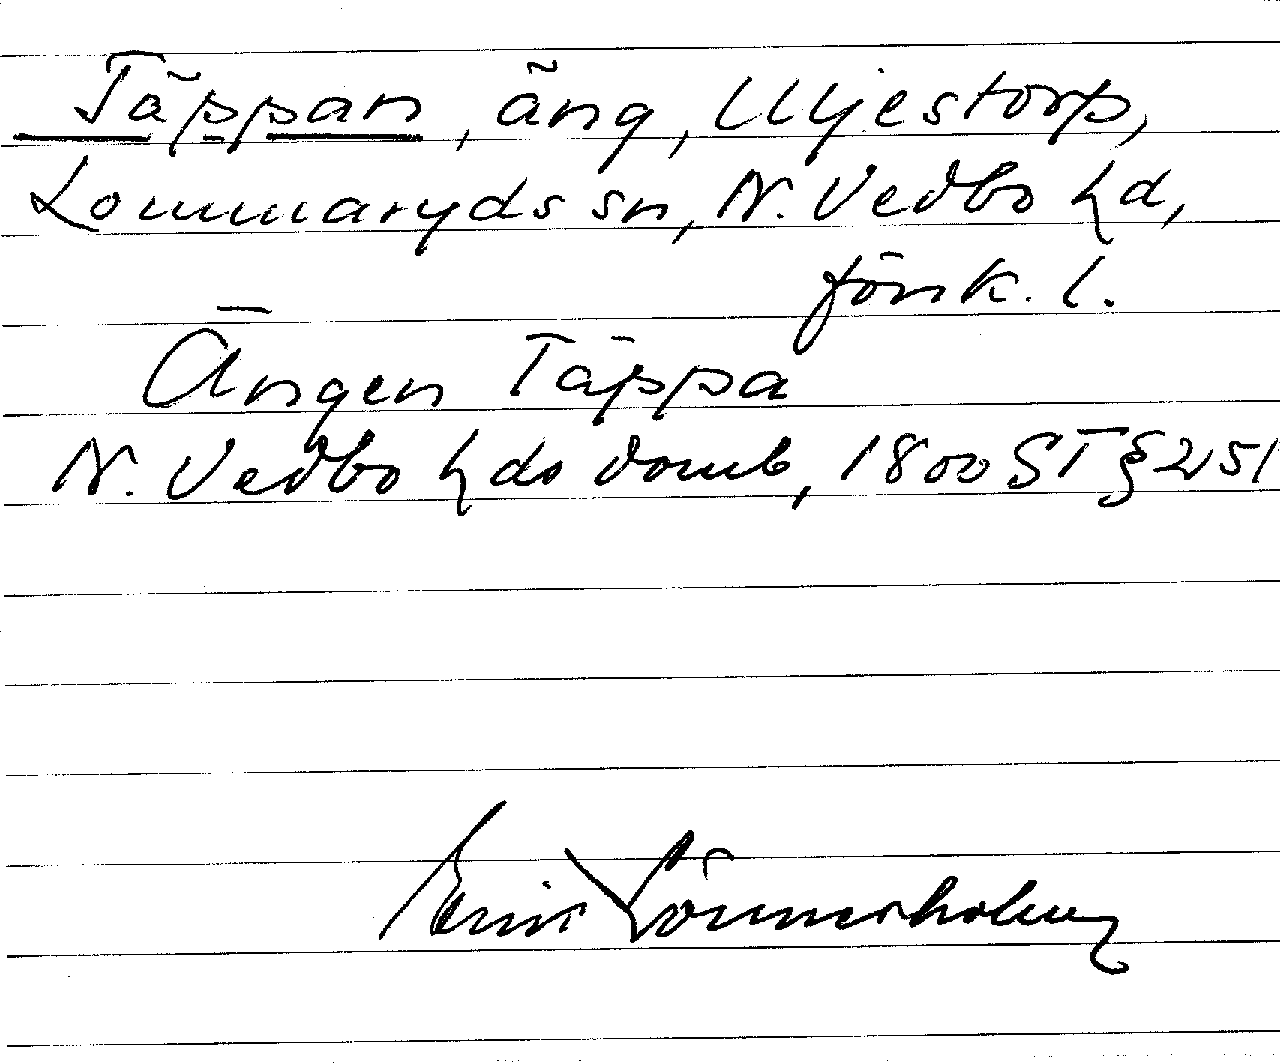 Täppan, äng, Uljestorp,
Lommaryds sn, N. Vedbo hd,
Jönk. l.
Ängen Täppa
N. Vedbo hds domb, 1800 ST § 251
Erik Lönnerholm